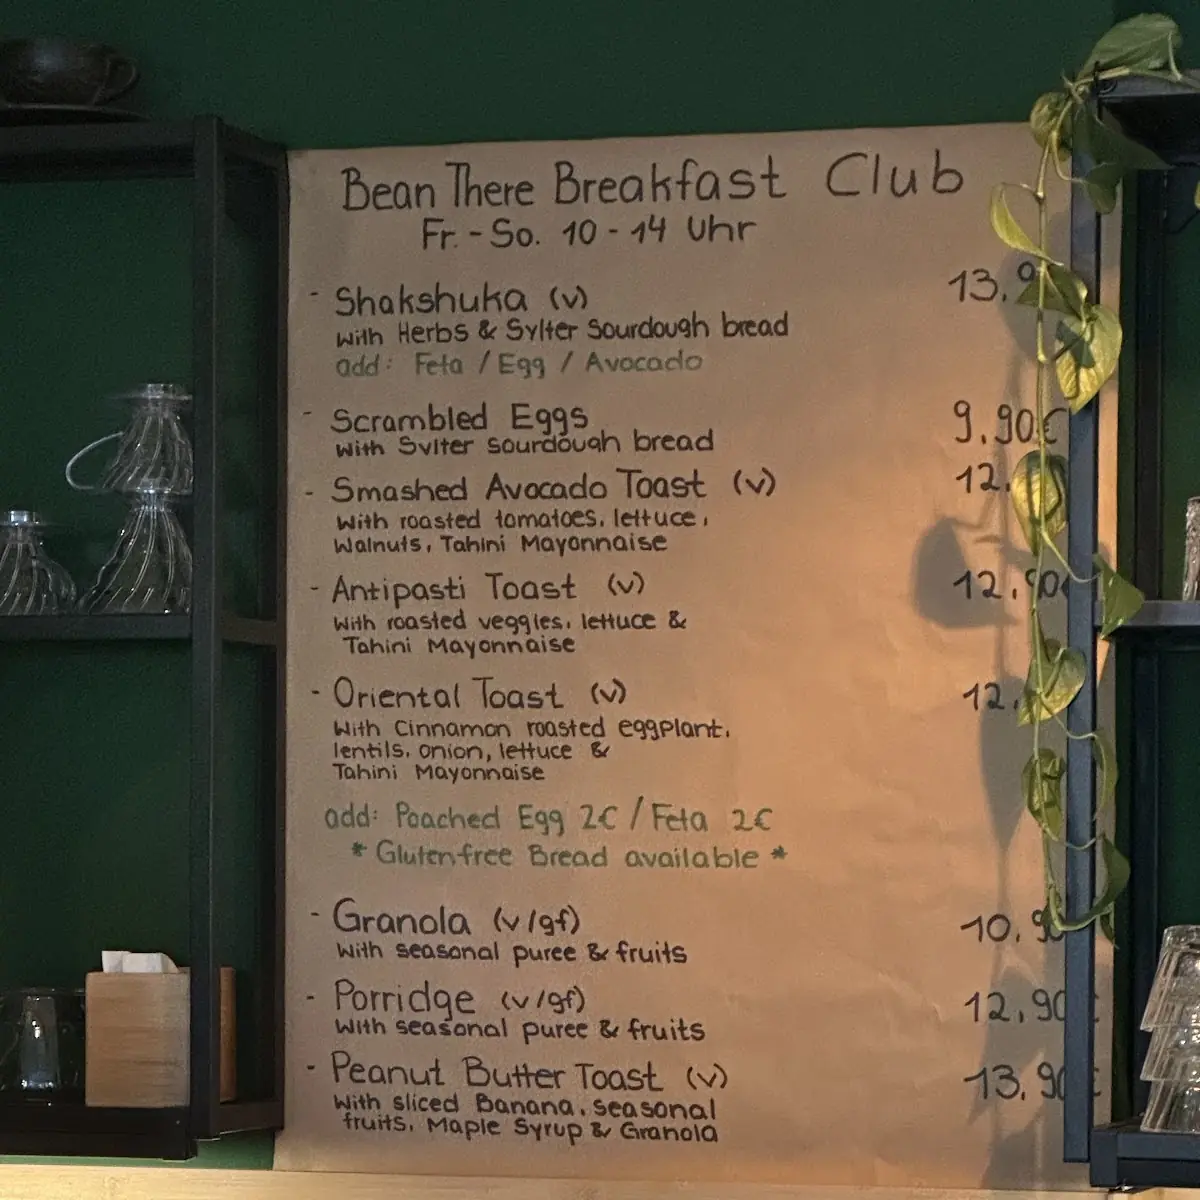 Bean There Breakfast Club
Fr. - So. 10 - 14 Uhr
- Shakshuka (v) 13.9
with Herbs & Sylter Sourdough bread
add: Feta / Egg / Avocado
- Scrambled Eggs 9.90€
with Sylter sourdough bread
- Smashed Avocado Toast (v) 12.
with roasted tomatoes, lettuce,
Walnuts, Tahini Mayonnaise
- Antipasti Toast (v) 12.90€
with roasted veggies, lettuce &
Tahini Mayonnaise
- Oriental Toast (v) 12.
with Cinnamon roasted eggplant,
lentils, onion, lettuce &
Tahini Mayonnaise
add: Poached Egg 2€ / Feta 2€
* Glutenfree Bread available *
- Granola (v/gf) 10.90
with seasonal puree & fruits
- Porridge (v/gf) 12,90€
with seasonal puree & fruits
- Peanut Butter Toast (v) 13.90€
with sliced Banana, seasonal
fruits, Maple Syrup & Granola